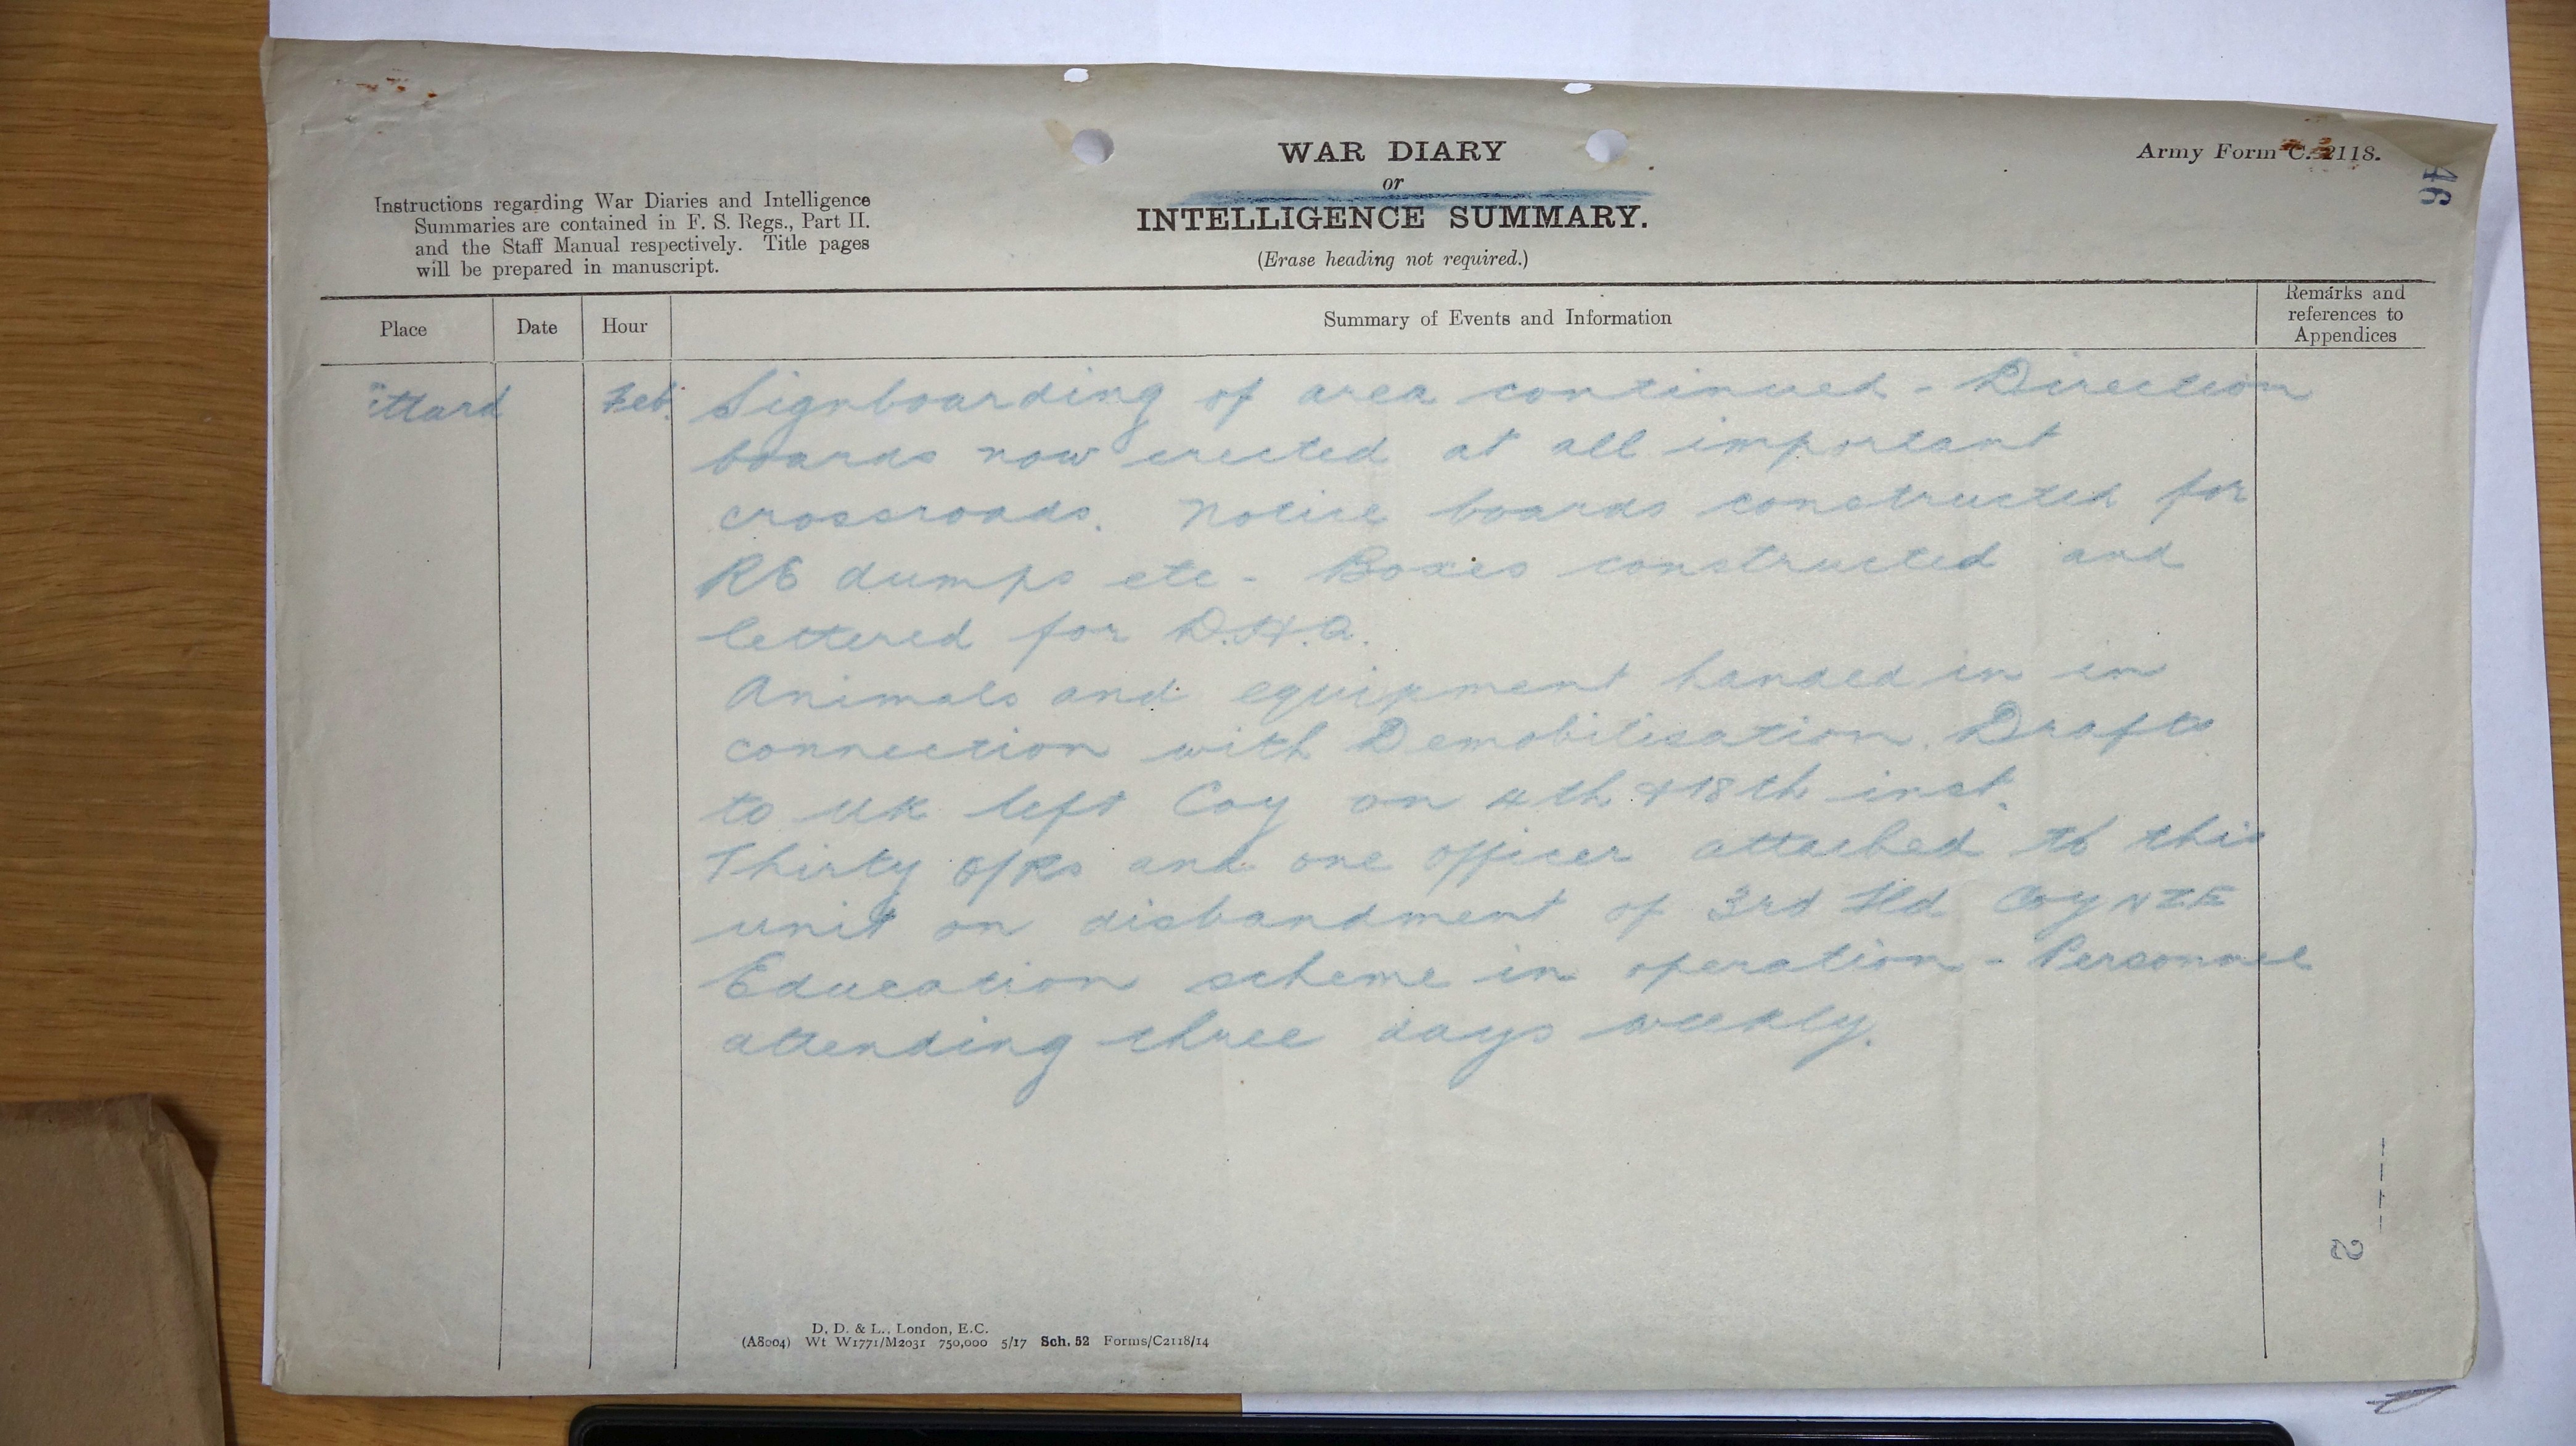 WAR DIARY
or
INTELLIGENCE SUMMARY.
(Erase heading not required.)
Army Form C. 2118.
46
Instructions regarding War Diaries and Intelligence
Summaries are contained in F. S. Regs., Part II.
and the Staff Manual respectively. Title pages
will be prepared in manuscript.
Place
Date
Hour
Summary of Events and Information
Remarks and
references to
Appendices
ittard
Feb.
Signboarding of area continued - Direction
boards now erected at all important
crossroads. Notice boards constructed for
RE dumps etc - Boxes constructed and
lettered for D.H.Q.
Animals and equipment handed in in
connection with Demobilisation. Drafts
to UK left Coy on 4th & 18th inst.
Thirty O/Rs and one officer attached to this
unit on disbandment of 3rd Fld Coy NZE
Education scheme in operation - Personnel
attending three days weekly.
2
D. D. & L., London, E.C.
(A8004) Wt W1771/M2031 750,000 5/17 Sch. 52 Forms/C2118/14